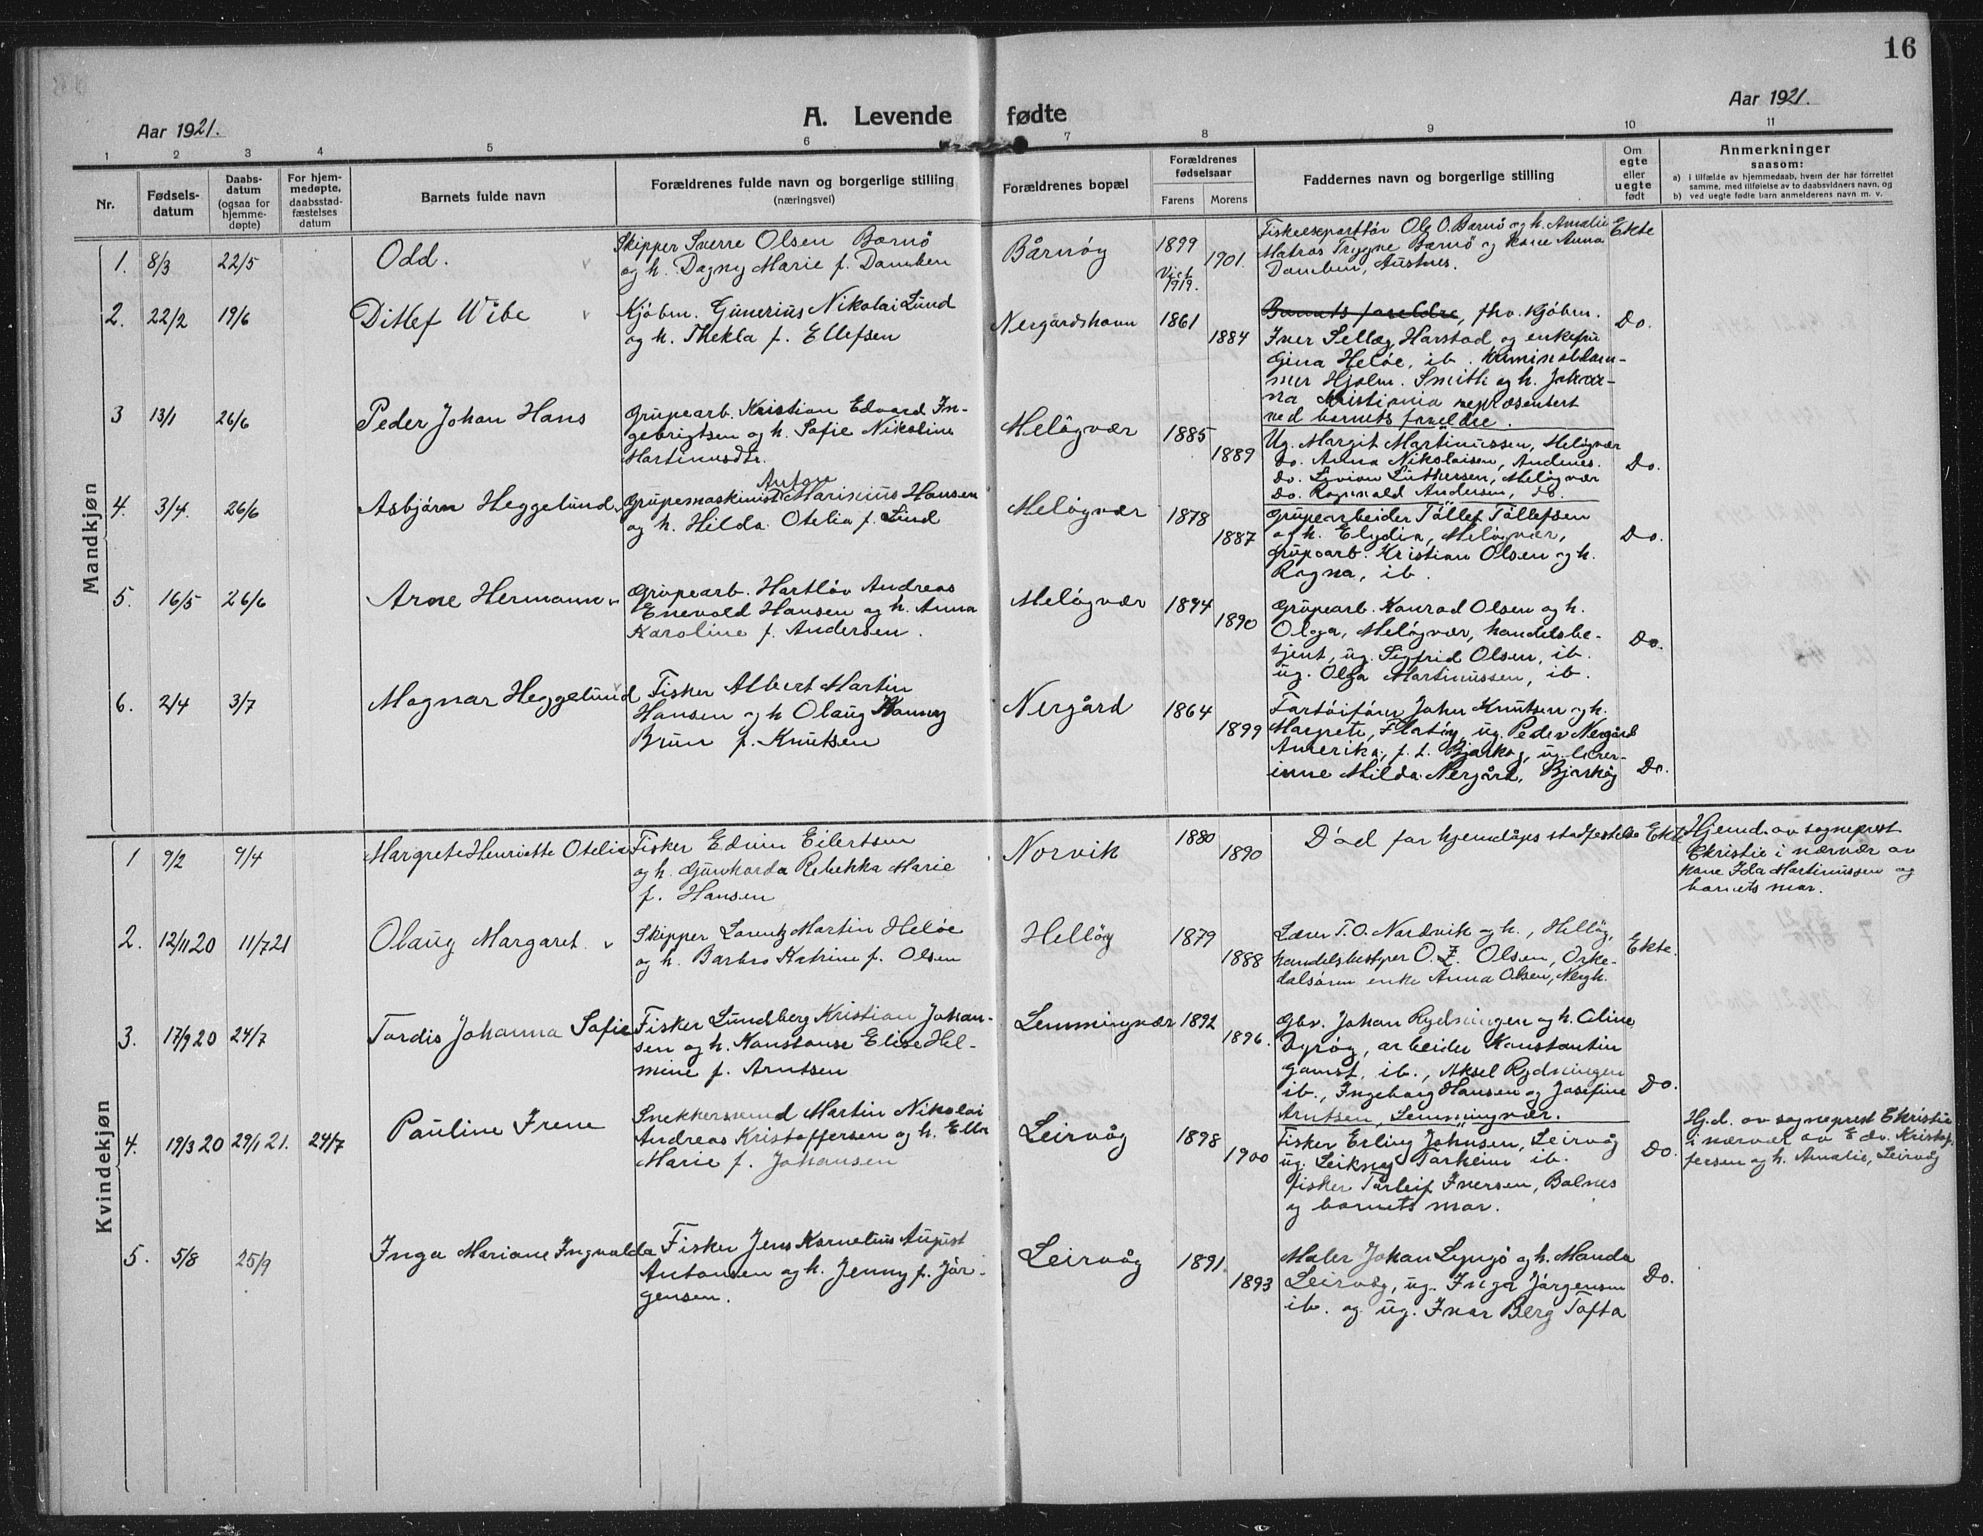 16
Aar 1921.
A. Levende fødte
Aar 1921.
1 2 3 4 5 6 7 8 9 10 11
Nr.
Fødsels-
datum
Daabs-
datum
(ogsaa for
hjemme-
døpte)
For hjem-
medøpte,
daabsstad-
fæstelses
datum
Barnets fulde navn
Forældrenes fulde navn og borgerlige stilling
(næringsvei)
Forældrenes bopæl
Forældrenes
fødselsaar
Farens Morens
Faddernes navn og borgerlige stilling
Om
egte
eller
uegte
født
Anmerkninger
saasom:
a) i tilfælde av hjemmedaab, hvem der har forrettet
samme, med tilføielse av to daabsvidners navn, og
b) ved uegte fødte barn anmelderens navn m. v.
Mandkjøn
1. 8/3 22/5 Odd.
Skipper Sverre Olsen Barnö
og h. Dagny Marie f. Damben
Bårnöy 1899 1901.
Viet
1919.
Fiskeexportför Ole O. Barnö og h. Amalie
Matros Trygve Barnö og kone Anna
Damben, Austnes.
Ekte
2. 22/2 19/6 Ditlef Wibe
Kjöbm. Gunerius Nikolai Lund
og h. Thekla f. Ellefsen
Nergårdshavn 1861 1884
Barnets foreldre, fhv. Kjöbm.
Iver Selläg Harstad og enkefru
Gina Helöe, ib. Kriminaldom-
mer Hjalm. Smith og h. Johan-
na Kristiania representert
ved barnets foreldre.
Do.
3 13/1 26/6 Peder Johan Hans
Grupearb. Kristian Edvard In-
gebrigtsen og h. Sofie Nikoline
Martinusdtr.
Melöyvær 1885 1889
Ug. Margit Martinussen, Melöyvær
Do. Anna Nikolaisen, Andenes.
Do. Livian Luthersen, Melöyvær
Do. Ragnvald Andersen, do.
Do.
4. 3/4. 26/6 Asbjörn Heggelund
Anton
Grupemaskinist Marinius Hansen
og h. Hilda Otelia f. Lund
Melöyvær 1878 1887
Grupearbeider Töllef Töllefsen
og h. Elydia, Melöyvær,
grupearb. Kristian Olsen og h.
Ragna, ib.
Do.
5. 16/5 26/6 Arne Hermann
Grupearb. Hartlöv Andreas
Enevold Hansen og h. Anna
Karoline f. Andersen.
Melöyvær 1894 1890
Grupearb. Konrad Olsen og h.
Olga, Melöyvær, handelsbe-
tjent, ug. Sigfrid Olsen, ib.
ug. Olga Martinussen, ib.
Do.
6. 2/4 3/7 Magnar Heggelund
Fisker Albert Martin
Hansen og h Olaug Hanny
Brun f. Knutsen
Nergård 1864 1899
Fartöiförer John Knutsen og h.
Margrete, Flatöy, ug. Peder Nergård
Amerika, f. t. Bjarköy, ug. lærer-
inne Milda Nergård, Bjarköy
Do.
Kvindekjøn
1 9/2 9/4 Margrete Henriette Otelia
Fisker Edvin Eilertsen
og h. Gunhorda Rebekka Marie
f. Hansen
Norvik 1880 1890
Död før hjemdåps stadfestelse
Ekte
Hjemd. av sogneprest
Ekristie i nærvær av
kone Ida Martinussen og
barnets mor.
2. 12/11 20 11/7 21 Olaug Margaret.
Skipper Lorentz Martin Helöe
og h. Barbro Katrine f. Olsen
Hellöy 1879 1888
Lærer T. O. Nordvik og h., Hellöy,
handelsbestyrer O. Z. Olsen, Orke-
dalsören enke Anna Olsen, Nergh.
Ekte.
3. 17/9 20 24/7 Tordis Johanna Sofie
Fisker Lundberg Kristian Johan-
sen og h. Konstanse Elise Hel-
mine f. Arntsen
Lemmingvær 1892 1896.
Gbr. Johan Rydningen og h. Oline
Dyröy, arbeider Konstantin
Gamst, ib., Aksel Rydningen
ib., Ingeborg Hansen og Josefine
Arntsen, Lemmingvær.
Do.
4. 19/3 20 29/1 21. 24/7 Pauline Irene
Snekkersvend Martin Nikolai
Andreas Kristoffersen og h. Ella
Marie f. Johansen
Leirvåg 1898 1900
Fisker Erling Johnsen, Leirvåg
ug. Leikny Torheim ib.
fisker Torleif Iversen, Balnes
og barnets mor.
Do.
Hj.d. av sogneprest Ekristie
i nærvær av Edv. Kristof-
fersen og h. Amalie, Leirvåg
5. 5/8 25/9 Inga Mariane Ingvalda
Fisker Jens Kornelius August
Antonsen og h. Jenny f. Jör-
gensen.
Leirvåg 1891. 1893
Maler Johan Lyngö og h. Manda
Leirvåg, ug. Inga Jörgensen
ib. og ug. Ivar Berg Tofta
Do.